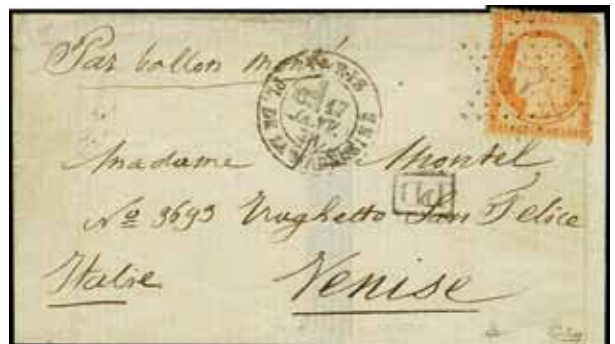 Par ballon monté
PARIS
17
JANV.
PL. DE LA
Madame Montel
PD
Nº 3693 Traghetto San Felice
Italie Venise